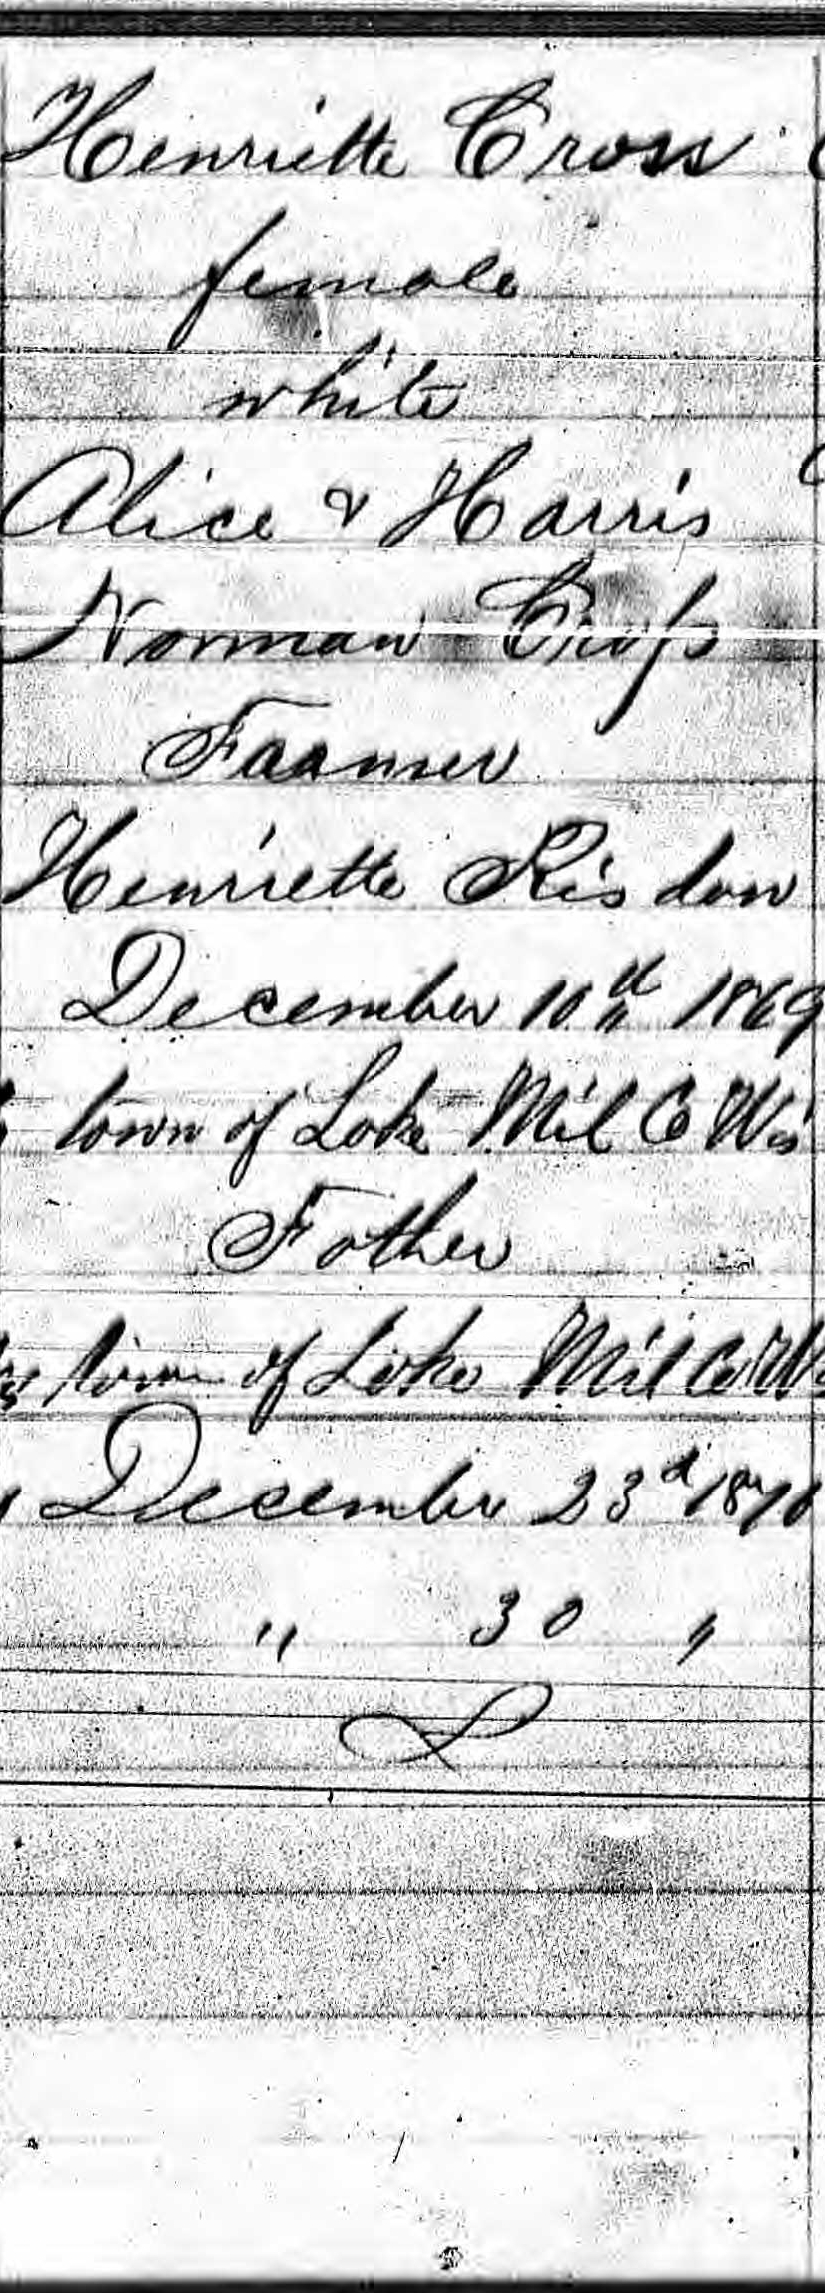 Henriette Cross
female
white
Alice & Harris
Norman Croſs
Faamer
Henriette Risdon
December 10th 1869
town of Lake Mil Co Wis
Father
town of Lake Mil Co Wis
December 23d 1870
" 30 "